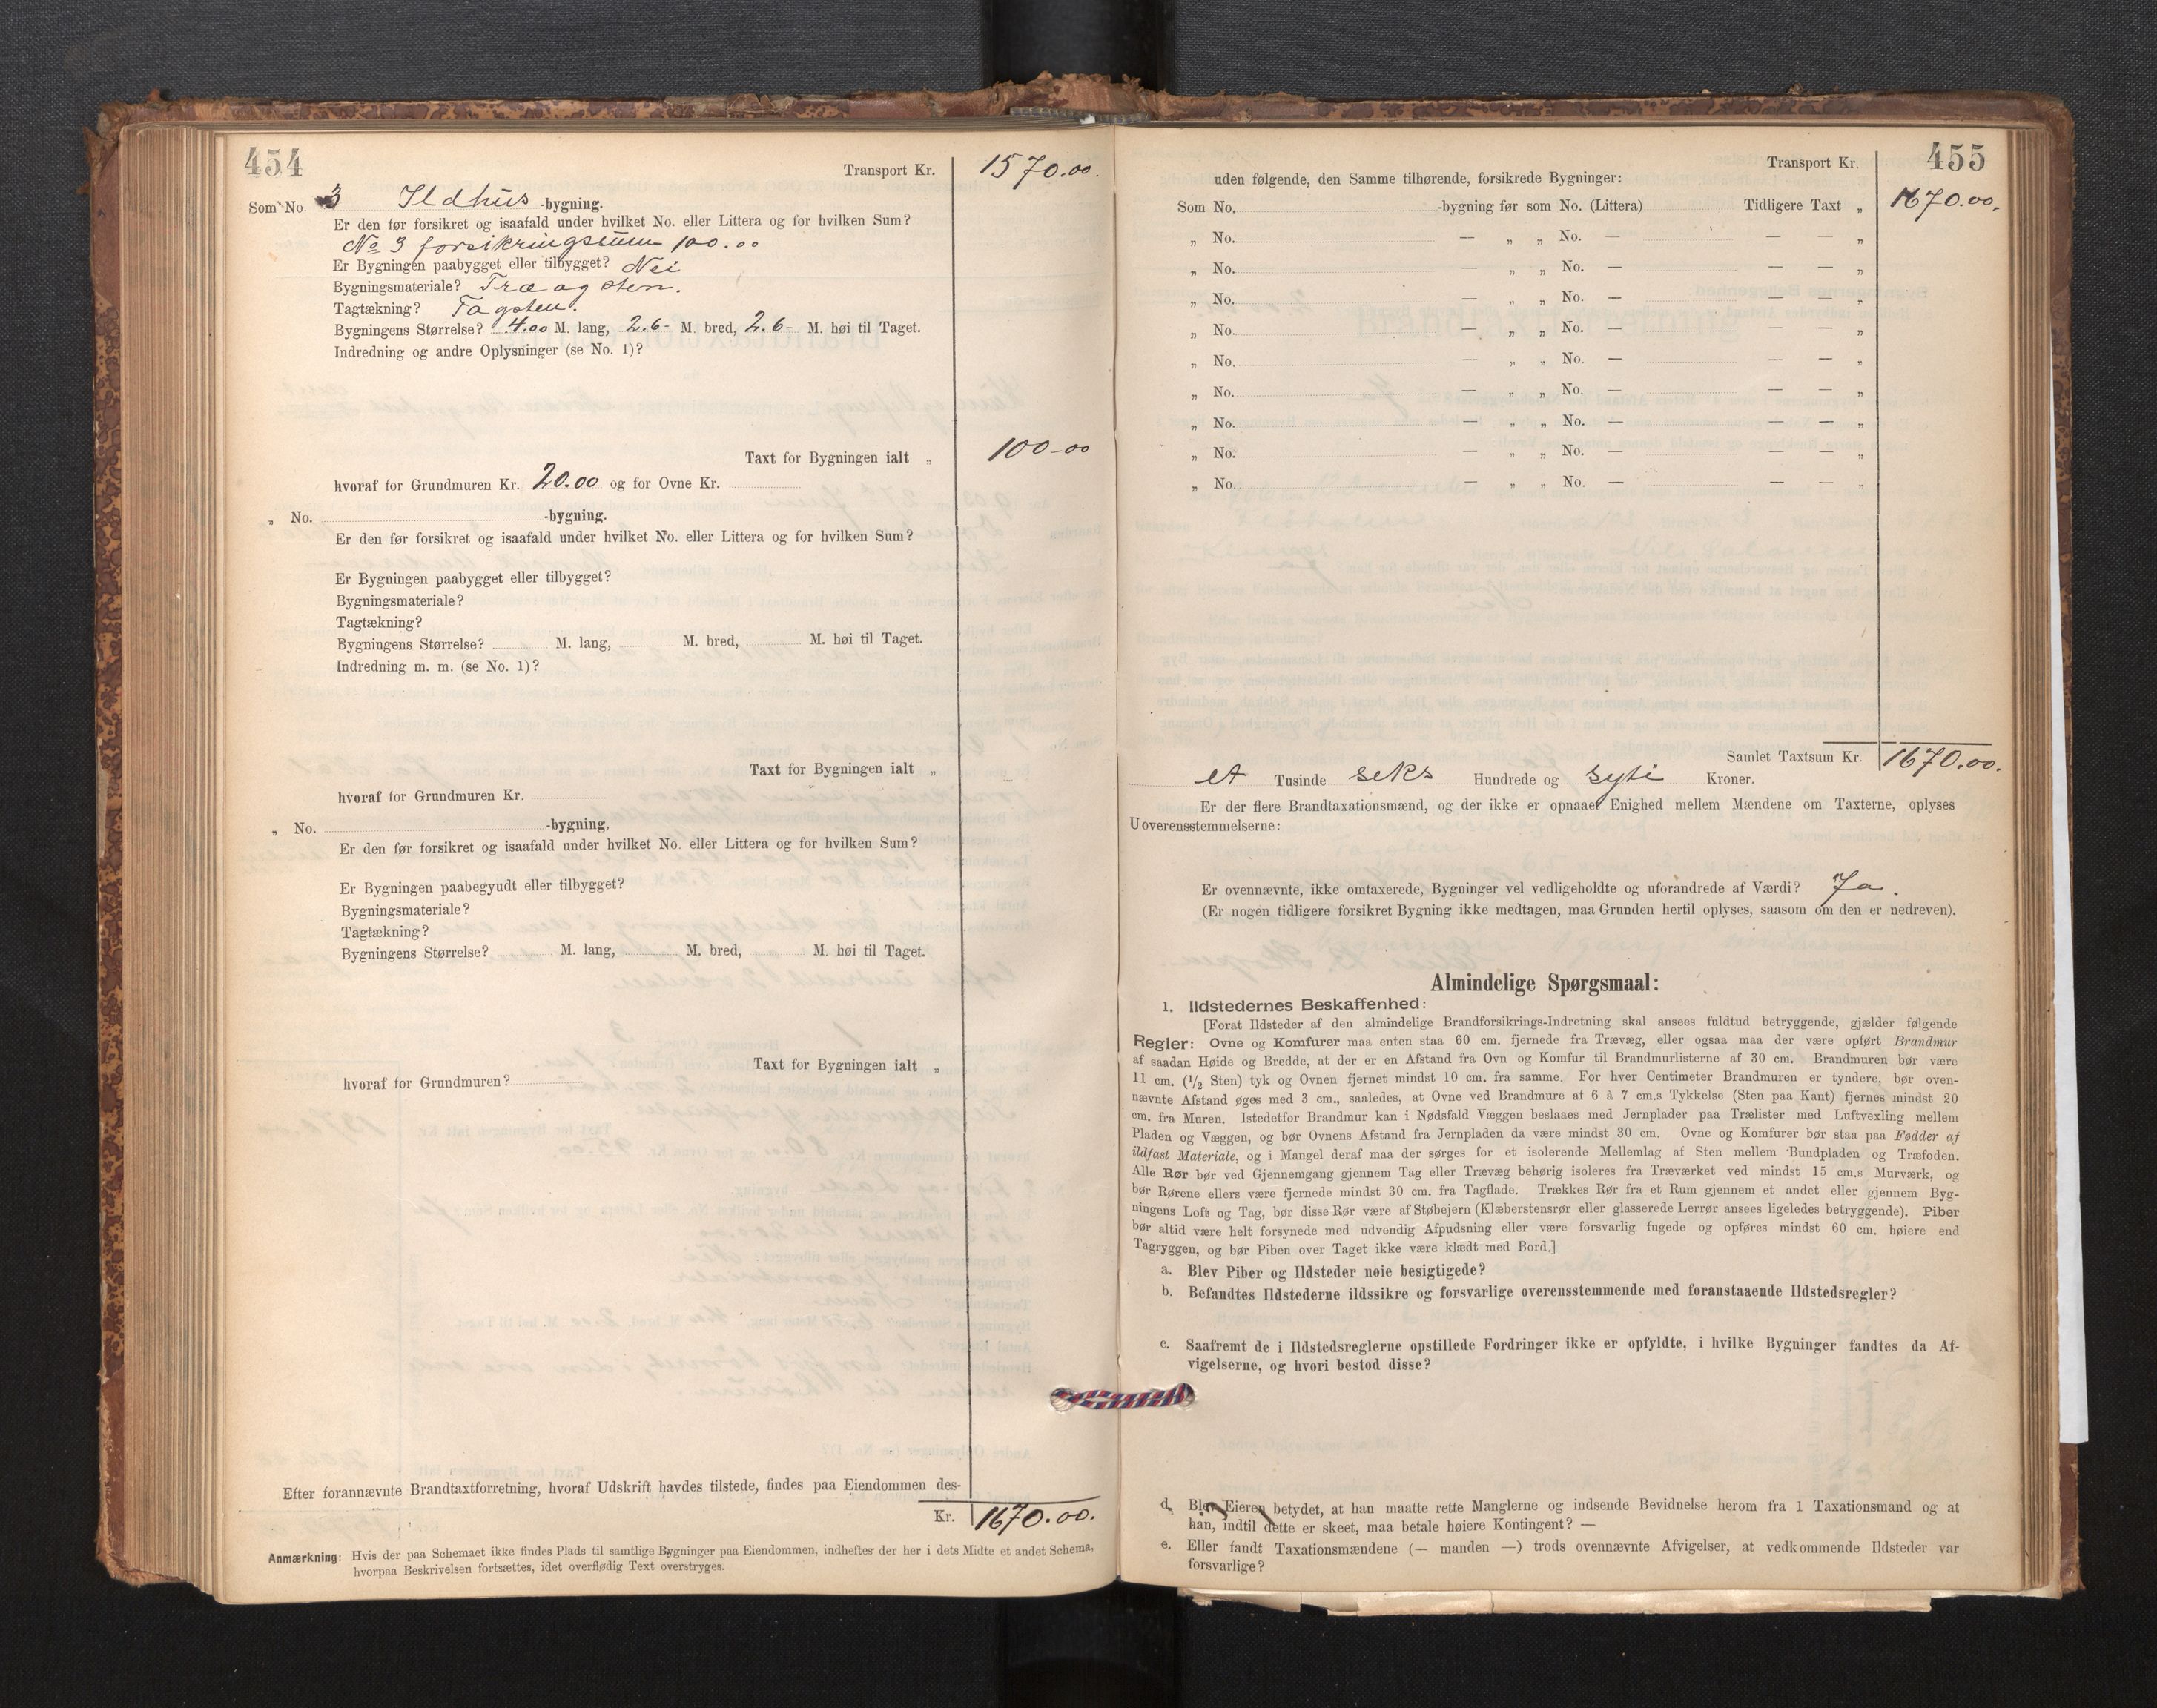 454
Transport Kr. 1570.00.
Som No. 3 Ildhus -bygning.
Er den før forsikret og isaafald under hvilket No. eller Littera og for hvilken Sum?
No 3 forsikringssum 100.00
Er Bygningen paabygget eller tilbygget? Nei
Bygningsmateriale? Træ og sten.
Tagtækning? Tagsten.
Bygningens Størrelse? 4.00 M. lang, 2.6- M. bred, 2.6- M. høi til Taget.
Indredning og andre Oplysninger (se No. 1)?
Taxt for Bygningen ialt „ 100-00
hvoraf for Grundmuren Kr. 20.00 og for Ovne Kr.
„ No. -bygning.
Er den før forsikret og isaafald under hvilket No. eller Littera og for hvilken Sum?
Er Bygningen paabygget eller tilbygget?
Bygningsmateriale?
Tagtækning?
Bygningens Størrelse? M. lang, M. bred, M. høi til Taget.
Indredning m. m. (se No. 1)?
Taxt for Bygningen ialt „
hvoraf for Grundmuren Kr.
„ No. -bygning,
Er den før forsikret og isaafald under hvilket No. eller Littera og for hvilken Sum?
Er Bygningen paabegyudt eller tilbygget?
Bygningsmateriale?
Tagtækning?
Bygningens Størrelse? M. lang, M. bred, M. høi til Taget.
Taxt for Bygningen ialt „
hvoraf for Grundmuren?
Efter forannævnte Brandtaxtforretning, hvoraf Udskrift havdes tilstede, findes paa Eiendommen des-
Kr. 1670.00.
Anmærkning: Hvis der paa Schemaet ikke findes Plads til samtlige Bygninger paa Eiendommen, indheftes der her i dets Midte et andet Schema,
hvorpaa Beskrivelsen fortsættes, idet overflødig Text overstryges.
Transport Kr. 455
uden følgende, den Samme tilhørende, forsikrede Bygninger:
Som No. -bygning før som No. (Littera) Tidligere Taxt „ 1670.00.
„ No. — „ „ No. — — — „
„ No. — „ „ No. — — — „
„ No. — „ „ No. — — — „
„ No. — „ „ No. — — — „
„ No. — „ „ No. — — — „
„ No. — „ „ No. — — — „
„ No. — „ „ No. — — — „
„ No. — „ „ No. — — — „
„ No. — „ „ No. — — — „
Samlet Taxtsum Kr. 1670.00.
et Tusinde seks Hundrede og syti Kroner.
Er der flere Brandtaxationsmænd, og der ikke er opnaaet Enighed mellem Mændene om Taxterne, oplyses
Uoverensstemmelserne:
Er ovennævnte, ikke omtaxerede, Bygninger vel vedligeholdte og uforandrede af Værdi? Ja.
(Er nogen tidligere forsikret Bygning ikke medtagen, maa Grunden hertil oplyses, saasom om den er nedreven).
Almindelige Spørgsmaal:
1. Ildstedernes Beskaffenhed:
[Forat Ildsteder af den almindelige Brandforsikrings-Indretning skal ansees fuldtud betryggende, gjælder følgende
Regler: Ovne og Komfurer maa enten staa 60 cm. fjernede fra Trævæg, eller ogsaa maa der være opført Brandmur
af saadan Høide og Bredde, at der er en Afstand fra Ovn og Komfur til Brandmurlisterne af 30 cm. Brandmuren bør være
11 cm. (1/2 Sten) tyk og Ovnen fjernet mindst 10 cm. fra samme. For hver Centimeter Brandmuren er tyndere, bør oven-
nævnte Afstand øges med 3 cm., saaledes, at Ovne ved Brandmure af 6 à 7 cm.s Tykkelse (Sten paa Kant) fjernes mindst 20
cm. fra Muren. Istedetfor Brandmur kan i Nødsfald Væggen beslaaes med Jernplader paa Trælister med Luftvexling mellem
Pladen og Væggen, og bør Ovnens Afstand fra Jernpladen da være mindst 30 cm. Ovne og Komfurer bør staa paa Fødder af
ildfast Materiale, og i Mangel deraf maa der sørges for et isolerende Mellemlag af Sten mellem Bundpladen og Træfoden.
Alle Rør bør ved Gjennemgang gjennem Tag eller Trævæg behørig isoleres fra Træværket ved mindst 15 cm.s Murværk, og
bør Rørene ellers være fjernede mindst 30 cm. fra Tagflade. Trækkes Rør fra et Rum gjennem et andet eller gjennem Byg-
ningens Loft og Tag, bør disse Rør være af Støbejern (Klæberstensrør eller glasserede Lerrør ansees ligeledes betryggende). Piber
bør altid være helt forsynede med udvendig Afpudsning eller være forsvarlig fugede og opføres mindst 60 cm. høiere end
Tagryggen, og bør Piben over Taget ikke være klædt med Bord.]
a. Blev Piber og Ildsteder nøie besigtigede?
b. Befandtes Ildstederne ildssikre og forsvarlige overensstemmende med foranstaaende Ildstedsregler?
c. Saafremt de i Ildstedsreglerne opstillede Fordringer ikke er opfyldte, i hvilke Bygninger fandtes da Af-
vigelserne, og hvori bestod disse?
d. Blev Eieren betydet, at han maatte rette Manglerne og indsende Bevidnelse herom fra 1 Taxationsmand og at
han, indtil dette er skeet, maa betale høiere Kontingent? —
e. Eller fandt Taxationsmændene (— manden —) trods ovennævnte Afvigelser, at vedkommende Ildsteder var
forsvarlige?